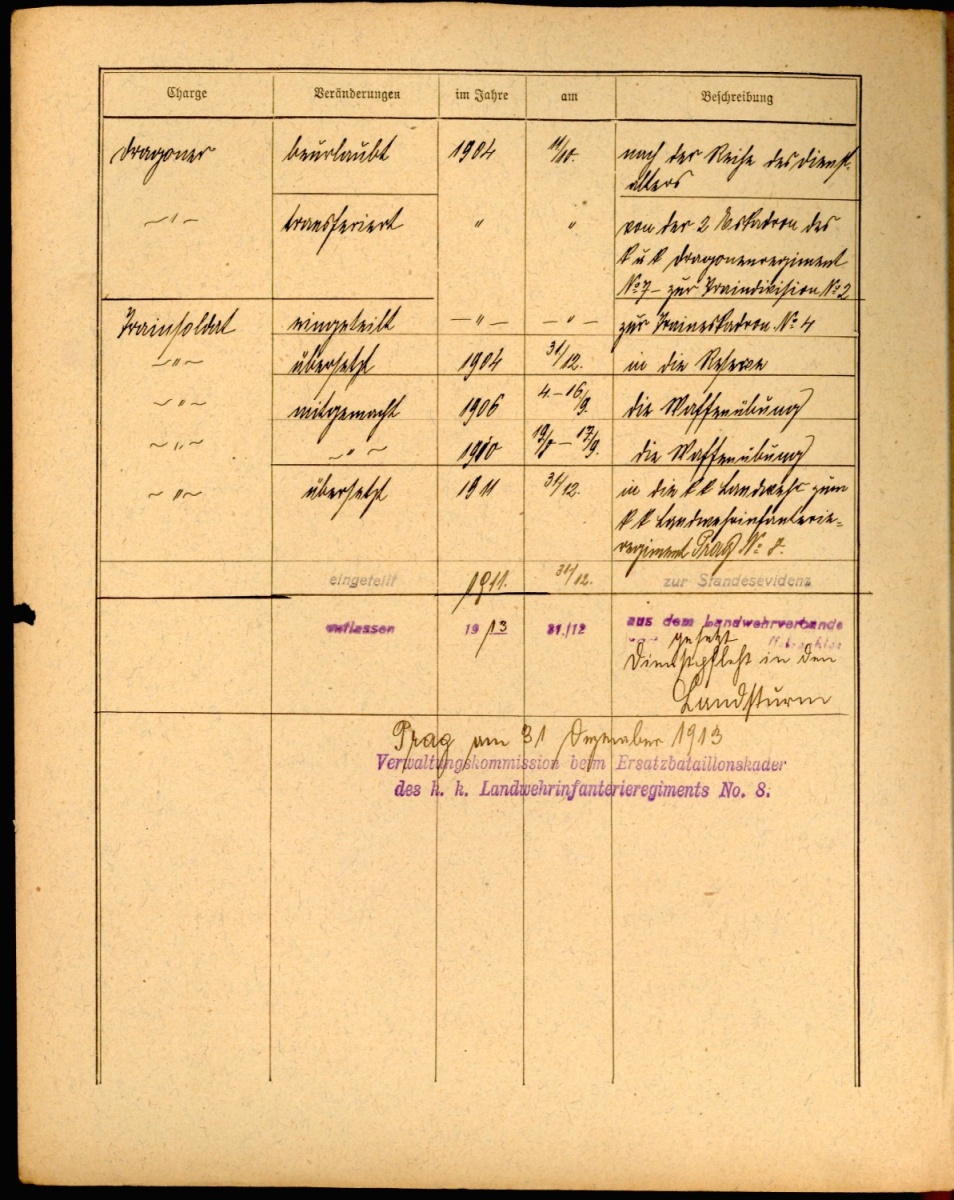 Charge Veränderungen im Jahre am Beschreibung
Dragoner beurlaubt 1904 11/10. nach der Reihe des Dienst-
alters
— " — transferiert " " von der 2 Eskadron des
k u k Dragonerregiment
No 7 – zur Traindivision No 2
Trainsoldat eingeteilt — " — — " — zur Traineskadron No 4
— " — übersetzt 1904 31/12. in die Reserve
— " — mitgemacht 1906 4.–16/9. die Waffenübung
— " — — " — 1910 –17/9. die Waffenübung
— " — übersetzt 1911 31/12. in die k k Landwehr zum
k k Landwehrinfanterie=
regiment Prag No 8.
eingeteilt 1911. 31/12. zur Standesevidenz
entlassen 1913 31./12 aus dem Landwehrverbande
gesetzt
Dienstpflicht in den
Landsturm
Prag am 31 Dezember 1913
Verwaltungskommission beim Ersatzbataillonskader
des k. k. Landwehrinfanterieregiments No. 8.